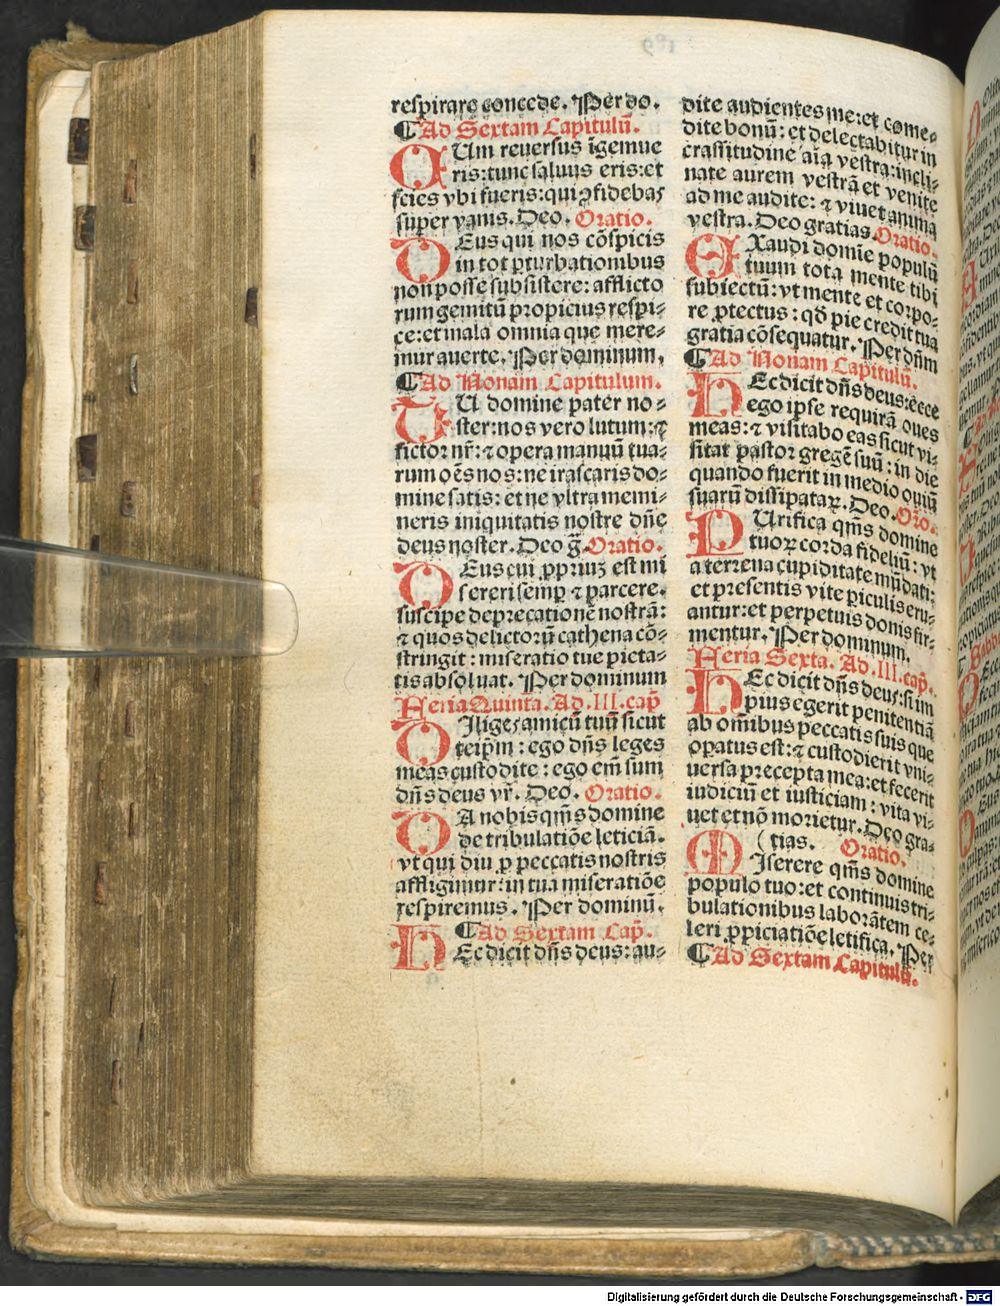 respirare concede. Per do.
¶Ad Sextam Capitulū.
CUm reuersus īgemue
ris: tunc saluus eris: et
scies vbi fueris: qui ꝯfidebas
super vanis. Deo. Oratio.
DEus qui nos cōspicis
in tot ꝑturbationibus
non posse subsistere: afflicto
rum gemitū propicius respi⸗
ce: et mala omnia que mere⸗
mur auerte. Per dominum,
¶Ad Nonam Capitulum.
TU domine pater no⸗
ster: nos vero lutum: ⁊
fictor nr̄: ⁊ opera manuū tua⸗
rum oēs nos: ne irascaris do⸗
mine satis: et ne vltra memi⸗
neris iniquitatis nostre dn̄e
deus noster. Deo ḡ. Oratio.
DEus cui ꝓpriuꝫ est mi
sereri semꝑ ⁊ parcere.
suscipe deprecationē nostrā:
⁊ quos delictoꝝ cathena cō⸗
stringit: miseratio tue pieta⸗
tis absoluat. Per dominum
Feria Quinta. Ad. III. cap̄
DIliges amicū tuū sicut
teip̄m: ego dn̄s leges
meas custodite: ego em̄ sum
dn̄s deus vr̄. Deo. Oratio.
DA nobis qm̄s domine
de tribulatiōe leticiā.
vt qui diu ꝓ peccatis nostris
affligimur: in tua miseratiōe
respiremus. Per dominū.
¶Ad Sextam Cap̄.
HEc dicit dn̄s deus: au⸗
dite audientes me: et come⸗
dite bonū: et delectabitur in
crassitudine aīa vestra: incli⸗
nate aurem vestrā et venite
ad me audite: ⁊ viuet anima
vestra. Deo gratias. Oratio.
EXaudi domīe populū
tuum tota mente tibi
subiectū: vt mente et corpo⸗
re ꝓtectus: qđ pie credit tua
gratia cōsequatur. Per dn̄m
¶Ad Nonam Capitulū.
HEc dicit dn̄s deus: ecce
ego ipse requirā oues
meas: ⁊ visitabo eas sicut vi⸗
sitat pastor gregē suū: in die
quando fuerit in medio ouiū
suarū dissipataꝝ. Deo. Oro.
PUrifica qm̄s domine
tuoꝝ corda fideliū: vt
a terrena cupiditate mūdati:
et presentis vite ꝑiculis eru⸗
antur: et perpetuis donis fir⸗
mentur. Per dominum.
Feria Sexta. Ad. III. cap̄.
HEc dicit dn̄s deus: si im
pius egerit penitentiā
ab omībus peccatis suis que
oꝑatus est: ⁊ custodierit vni⸗
uersa precepta mea: et fecerit
iudiciū et iusticiam: vita vi⸗
uet et nō morietur. Deo gra⸗
(tias. Oratio.
MIserere qm̄s domine
populo tuo: et continuis tri⸗
bulationibus laborātem ce⸗
leri ꝓpiciatiōe letifica. Per
¶Ad Sextam Capitulū.
Digitalisierung gefördert durch die Deutsche Forschungsgemeinschaft - DFG